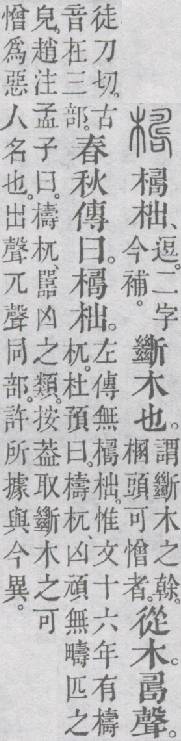 㮯 㮯柮、逗。二字今補。斷木也。謂斷木之榦。梱頭可憎者。從木。𠷎聲。
徒刀切。古音在三部。春秋傳曰。㮯柮。左傳無㮯柮。惟文十六年有檮杌。杜預曰。檮杌、凶頑無疇匹之
皃。趙注孟子曰。檮杌、嚚凶之類。按葢取斷木之可
憎爲惡人名也。出聲兀聲同部。許所據與今異。